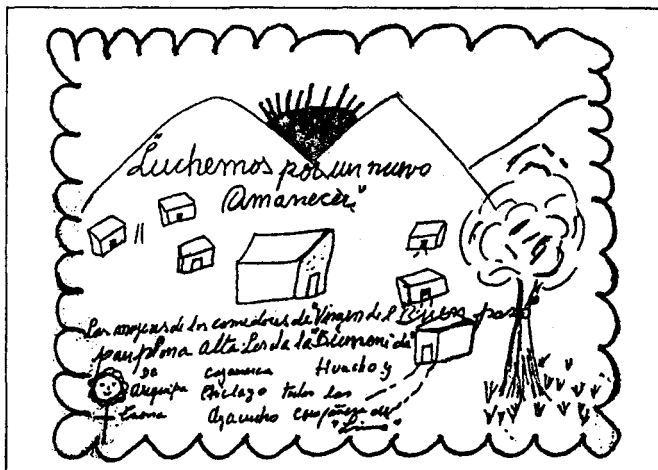 "Luchemos por un nuevo
Amanecer"
Las mujeres de los comedores de "Virgen de el Buen paso"
pamplona Alta Las de la
De Cajamarca Huacho y
Arequipa Chiclayo todas las
Tacna Ayacucho compañeras de
"Lima"